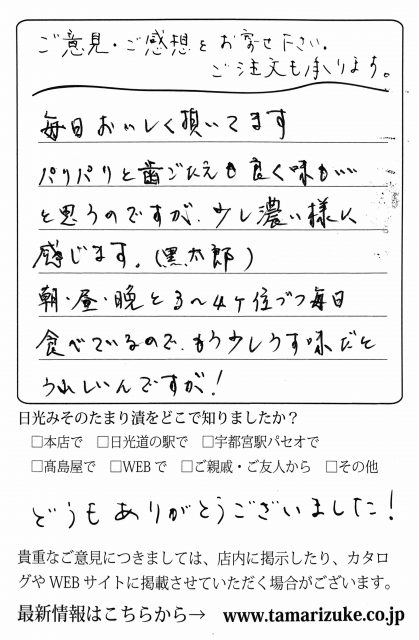 ご意見・ご感想をお寄せ下さい。
ご注文も承ります。
毎日おいしく頂いてます
パリパリと歯ごたえも良く味もいい
と思うのですが、少し濃い様に
感じます。(黒太郎)
朝・昼・晩と3〜4ケ位づつ毎日
食べているので、もう少しうす味だと
うれしいんですが!
日光みそのたまり漬をどこで知りましたか？
□本店で □日光道の駅で □宇都宮駅パセオで
□髙島屋で □WEBで □ご親戚・ご友人から □その他
どうもありがとうございました!
貴重なご意見につきましては、店内に掲示したり、カタロ
グやWEBサイトに掲載させていただく場合がございます。
最新情報はこちらから→ www.tamarizuke.co.jp